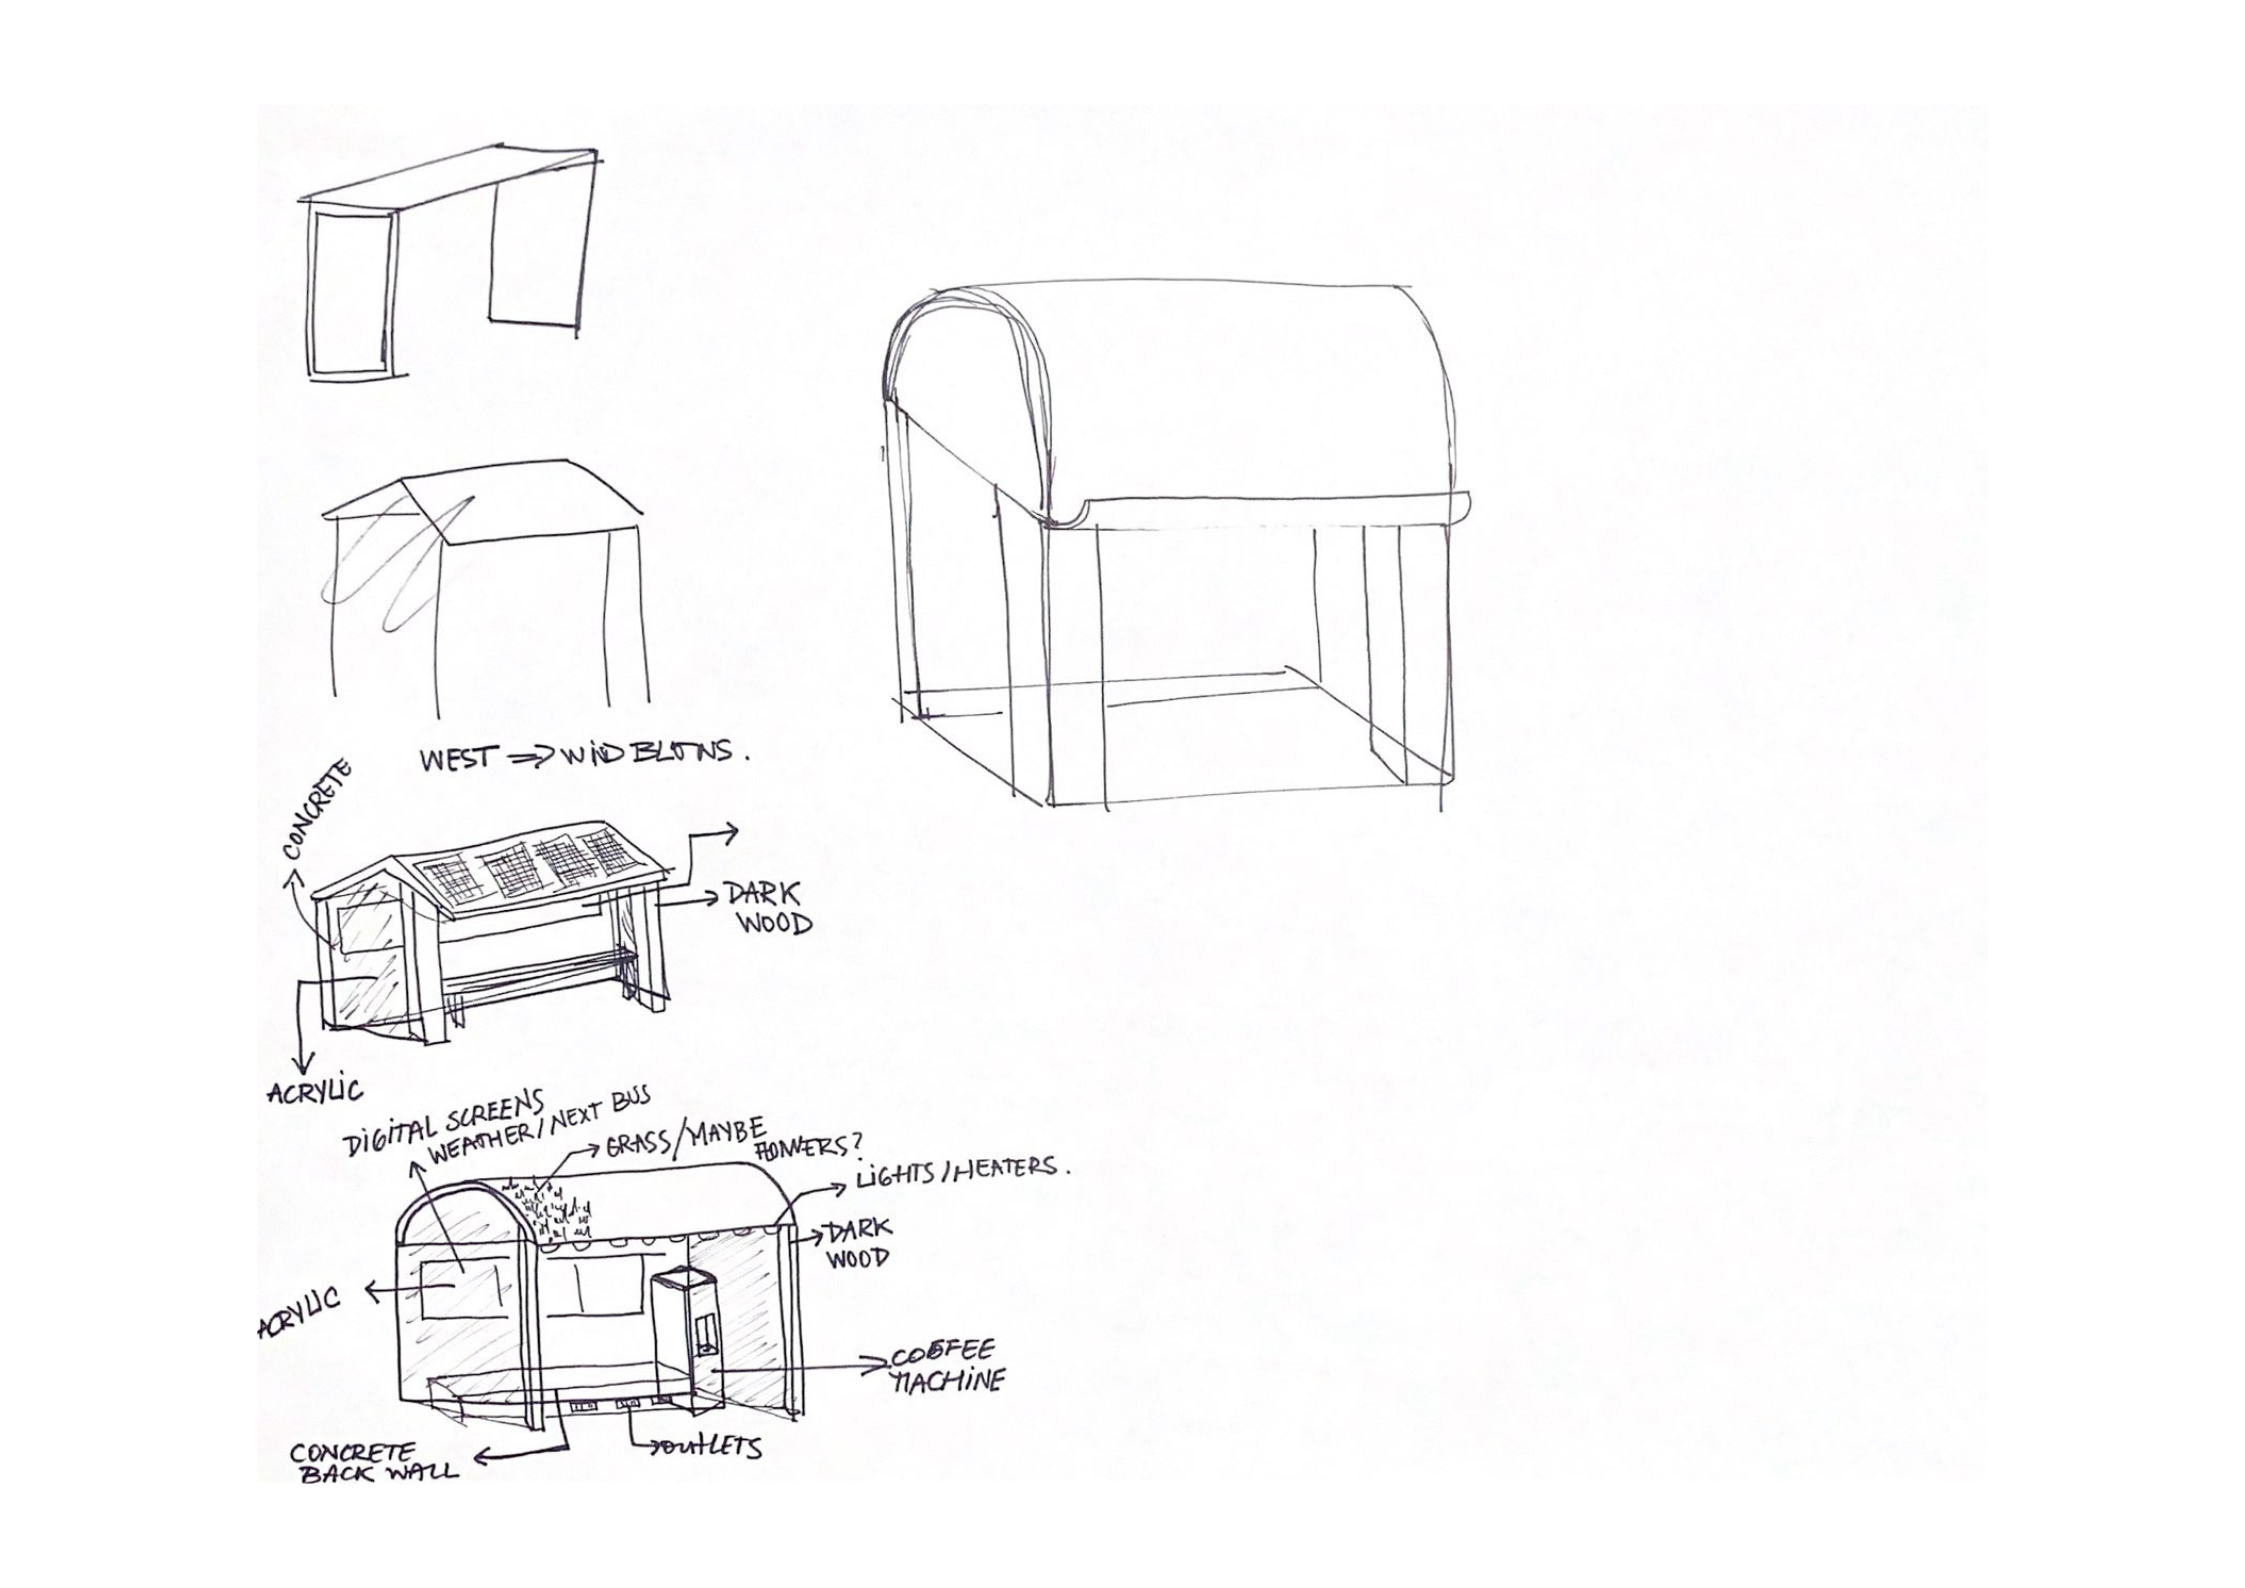 WEST ⇒ WIND BLOWS.
CONCRETE
DARK
WOOD
ACRYLIC
DIGITAL SCREENS
WEATHER/NEXT BUS
GRASS/MAYBE
FLOWERS?
LIGHTS/HEATERS.
DARK
WOOD
ACRYLIC
COFFEE
MACHINE
CONCRETE
BACK WALL
OUTLETS